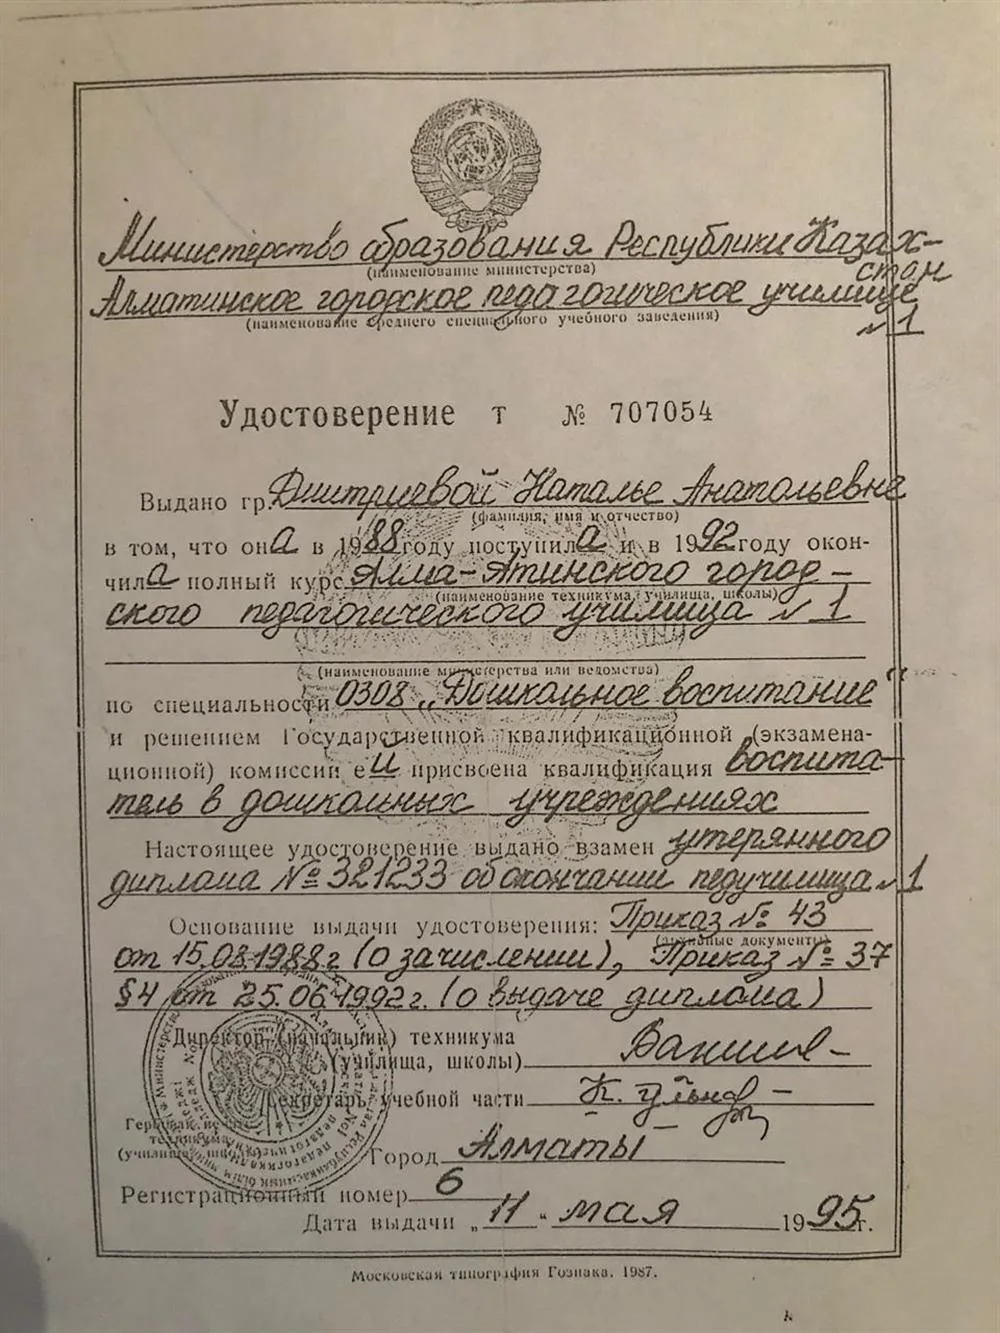 Министерство образования Республики Казах-
стан
(наименование министерства)
Алматинское городское педагогическое училище
№1
(наименование среднего специального учебного заведения)
Удостоверение т № 707054
Выдано гр. Дмитриевой Наталье Анатольевне
(фамилия, имя и отчество)
в том, что она в 1988 году поступила и в 1992 году окон-
чила полный курс Алма-Атинского город-
(наименование техникума, училища, школы)
ского педагогического училища №1
(наименование министерства или ведомства)
по специальности 0308 „Дошкольное воспитание"
и решением Государственной квалификационной (экзамена-
ционной) комиссии ей присвоена квалификация воспита-
тель в дошкольных учреждениях
Настоящее удостоверение выдано взамен утерянного
диплома № 321233 об окончании педучилища №1
Основание выдачи удостоверения: Приказ № 43
(архивные документы)
от 15.08.1988г (о зачислении), Приказ № 37
§4 от 25.06.1992г. (о выдаче диплома)
Директор (начальник) техникума
(училища, школы)
Секретарь учебной части
Гербовая печать
техникума
(училища, школы)
Город Алматы
Регистрационный номер 6
Дата выдачи „11" мая 1995г.
Московская типография Гознака. 1987.